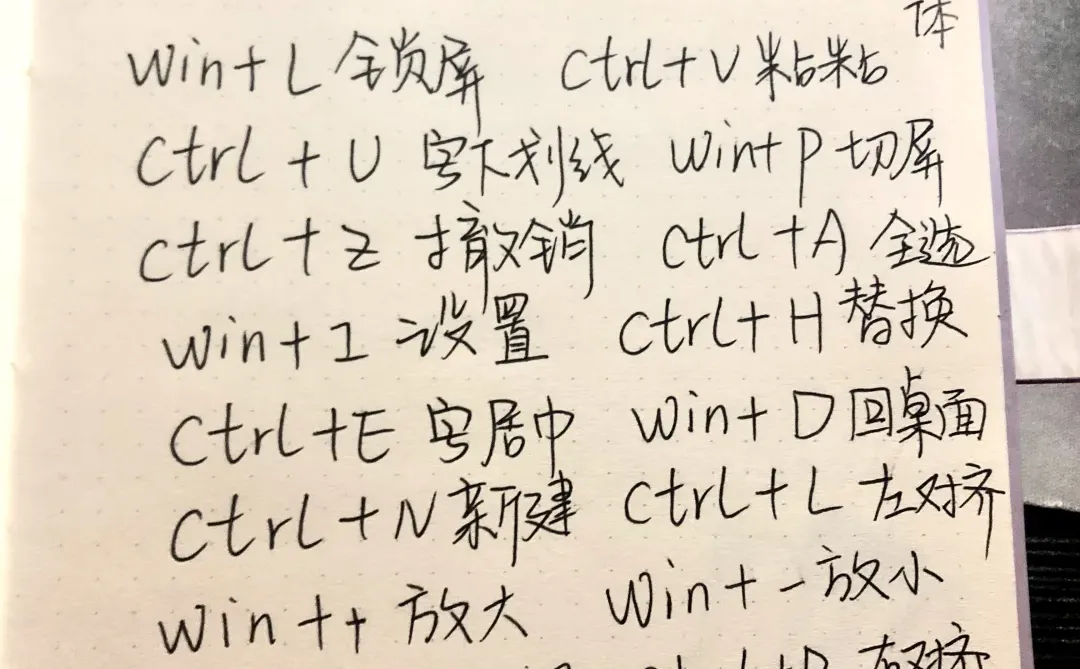 体
Win+L 锁屏 Ctrl+V 粘粘
Ctrl+U 字下划线 Win+P 切屏
Ctrl+Z 撤销 Ctrl+A 全选
Win+I 设置 Ctrl+H 替换
Ctrl+E 字居中 Win+D 回桌面
Ctrl+N 新建 Ctrl+L 左对齐
Win++ 放大 Win+- 放小
右对齐